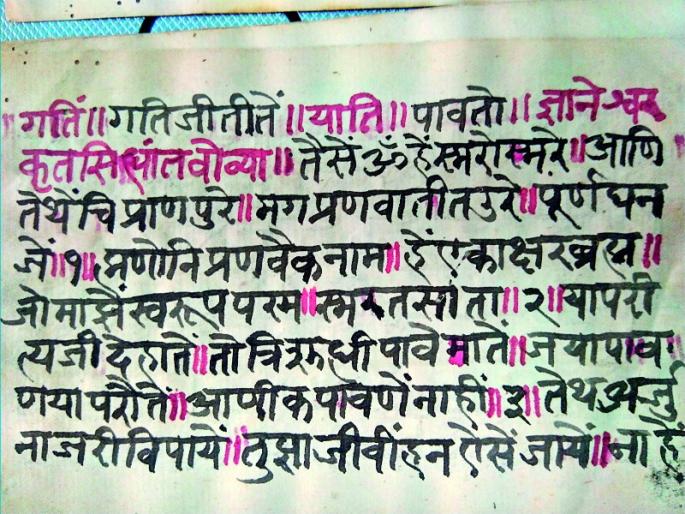 गतिं॥ गति जीतीतें ॥ याति॥ पावतो॥ ज्ञानेश्वर
कृतसिध्धांतवोव्या॥ तैसें ॐ हें स्मरों स्मरे॥ आणि
तेथेंचि प्राण पुरे॥ मग प्रणवातीत उरे॥ पूर्णघन
जें॥१॥ म्हणोनि प्रणवैकनाम॥ हें एकाक्षर ब्रह्म॥
जो माझें स्वरूप परम॥ स्मरतसांता॥ २॥ यापरी
त्यजी देहातें॥ तो त्रिशुद्धी पावे मातें॥ जया पाव
णया परौतें॥ आणीक पावणें नाहीं॥३॥ तेथ अर्जु
ना जरी विपायें॥ तुझा जीवीं हन ऐसें जायें॥ना हें